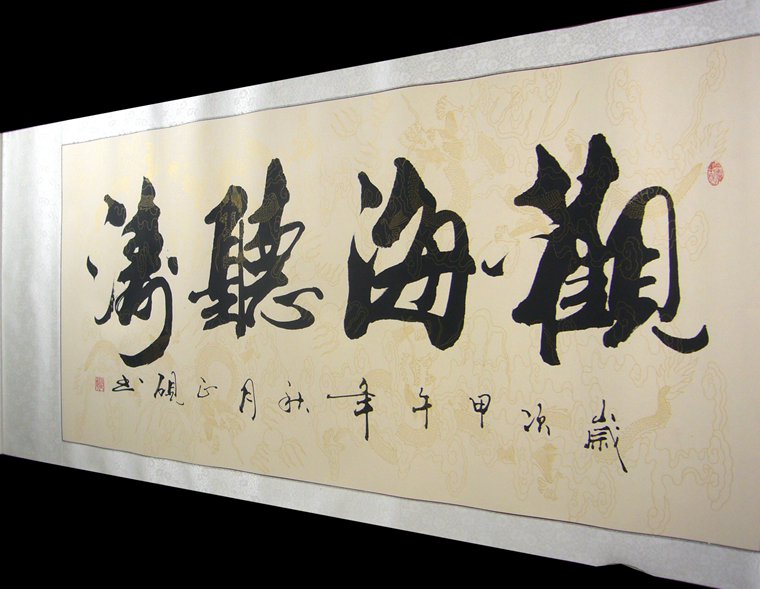 觀海聽濤
歲次甲午年秋月正硯书